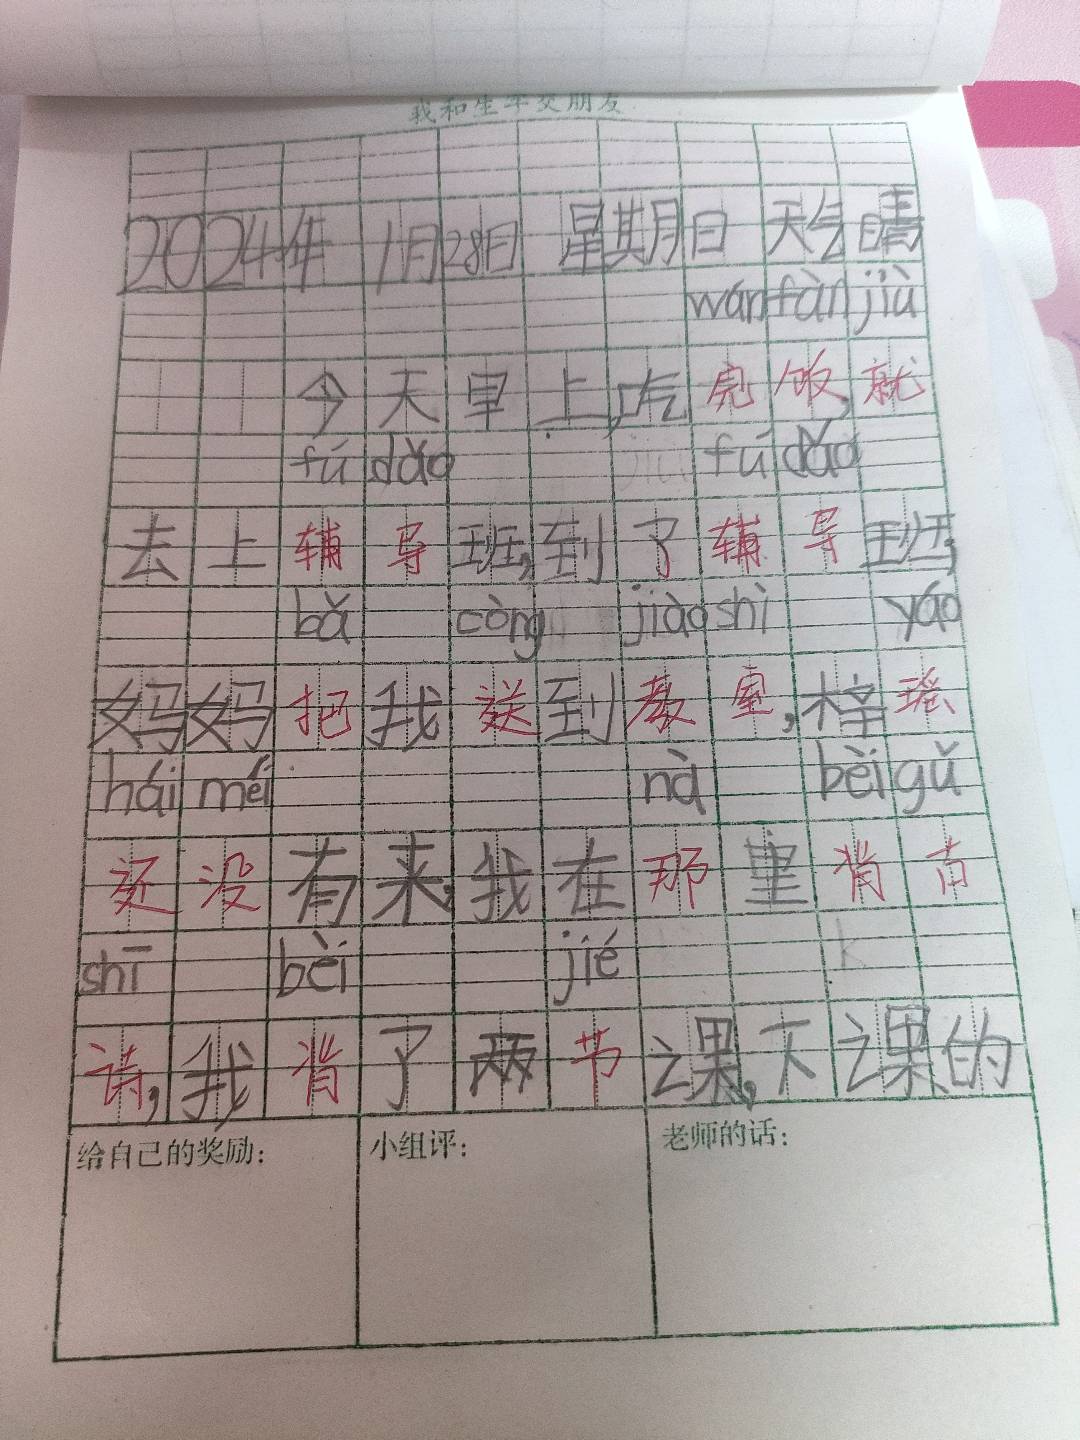 我和生字交朋友
2024年 1月28日 星期日 天气晴
wán fàn jiù
今天早上,吃完饭,就
fǔ dǎo fǔ dǎo
去上辅导班,到了辅导班,
bǎ còng jiào shì yáo
妈妈把我送到教室,梓瑶
hái méi nà bèi gǔ
还没有来,我在那里背古
shī bèi jié
诗,我背了两节课,下课的
给自己的奖励: 小组评: 老师的话: